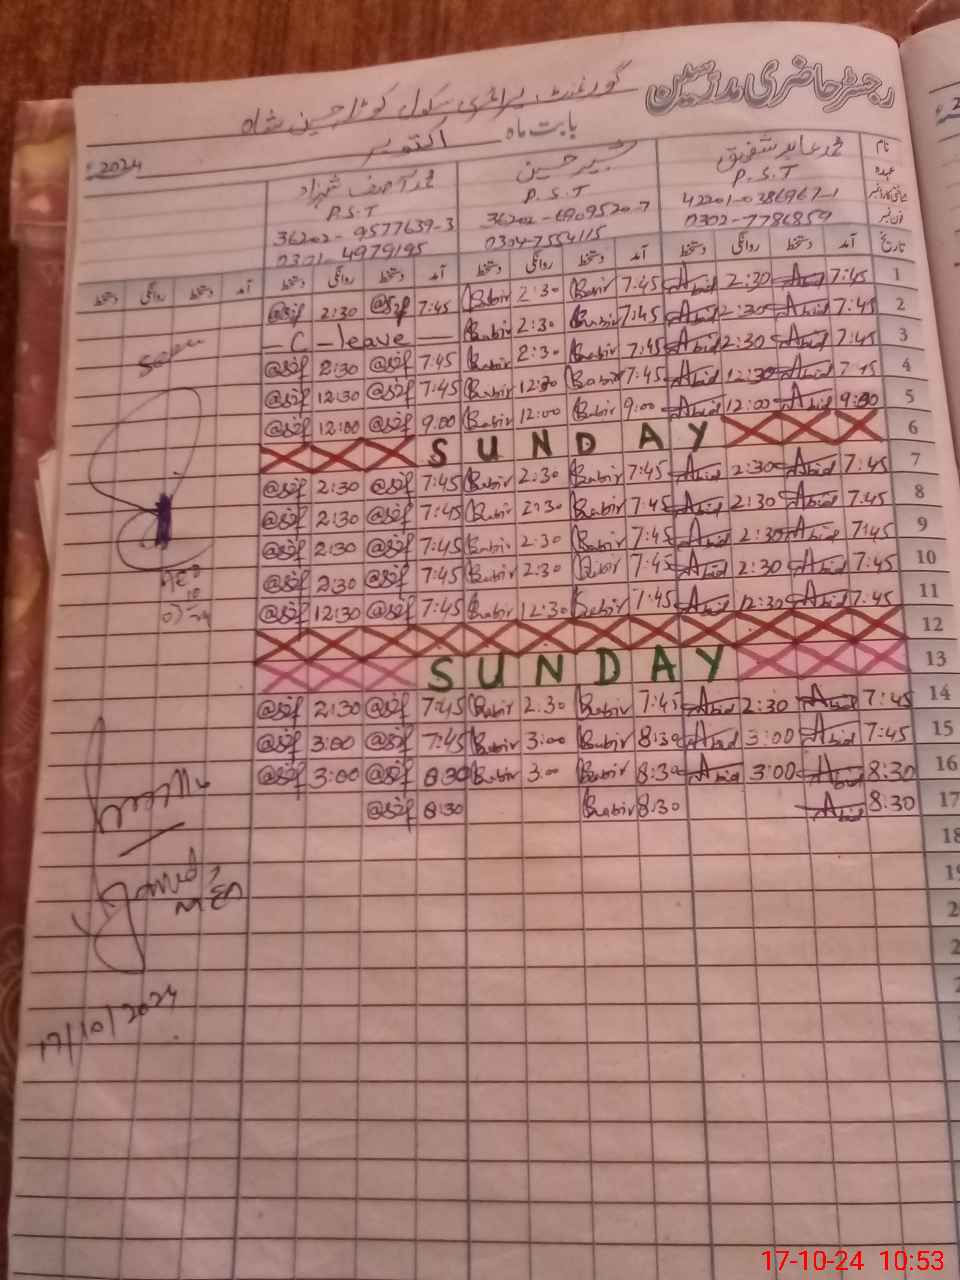 رجسٹر حاضری مدرسین
گورنمنٹ پرائمری سکول کوٹلہ حسین شاہ
بابت ماہ اکتوبر 2024ء
نام محمد عابد شفیق شبیر حسین محمد آصف شہزاد
عہدہ P.S.T P.S.T P.S.T
42201-0386967-1 36202-6909520-7 36202-9577639-3
فون نمبر 0302-7786859 0304-7554115 0301-4979195
تاریخ آمد دستخط روانگی دستخط آمد دستخط روانگی دستخط آمد دستخط روانگی دستخط آمد دستخط روانگی دستخط
1 7:45 Abid 2:30 Abid 7:45 Babir 2:30 Babir 7:45 @sif 2:30 @sif
2 7:45 Abid 2:30 Abid 7:45 Babir 2:30 Babir — C - leave —
3 7:45 Abid 2:30 Abid 7:45 Babir 2:30 Babir 7:45 @sif 2:30 @sif
4 7:45 Abid 12:30 Abid 7:45 Babir 12:30 Babir 7:45 @sif 12:30 @sif
5 9:00 Abid 12:00 Abid 9:00 Babir 12:00 Babir 9:00 @sif 12:00 @sif
6 SUNDAY
7 7:45 Abid 2:30 Abid 7:45 Babir 2:30 Babir 7:45 @sif 2:30 @sif
8 7:45 Abid 2:30 Abid 7:45 Babir 2:30 Babir 7:45 @sif 2:30 @sif
9 7:45 Abid 2:30 Abid 7:45 Babir 2:30 Babir 7:45 @sif 2:30 @sif
10 7:45 Abid 2:30 Abid 7:45 Babir 2:30 Babir 7:45 @sif 2:30 @sif
11 7:45 Abid 12:30 Abid 7:45 Babir 12:30 Babir 7:45 @sif 12:30 @sif
12
13 SUNDAY
14 7:45 Abid 2:30 Abid 7:45 Babir 2:30 Babir 7:45 @sif 2:30 @sif
15 7:45 Abid 3:00 Abid 8:30 Babir 3:00 Babir 7:45 @sif 3:00 @sif
16 8:30 Abid 3:00 Abid 8:30 Babir 3:00 Babir 8:30 @sif 3:00 @sif
17 8:30 Abid 8:30 Babir 8:30 @sif
18
Seen
AEO
17/10/2024
17-10-24 10:53